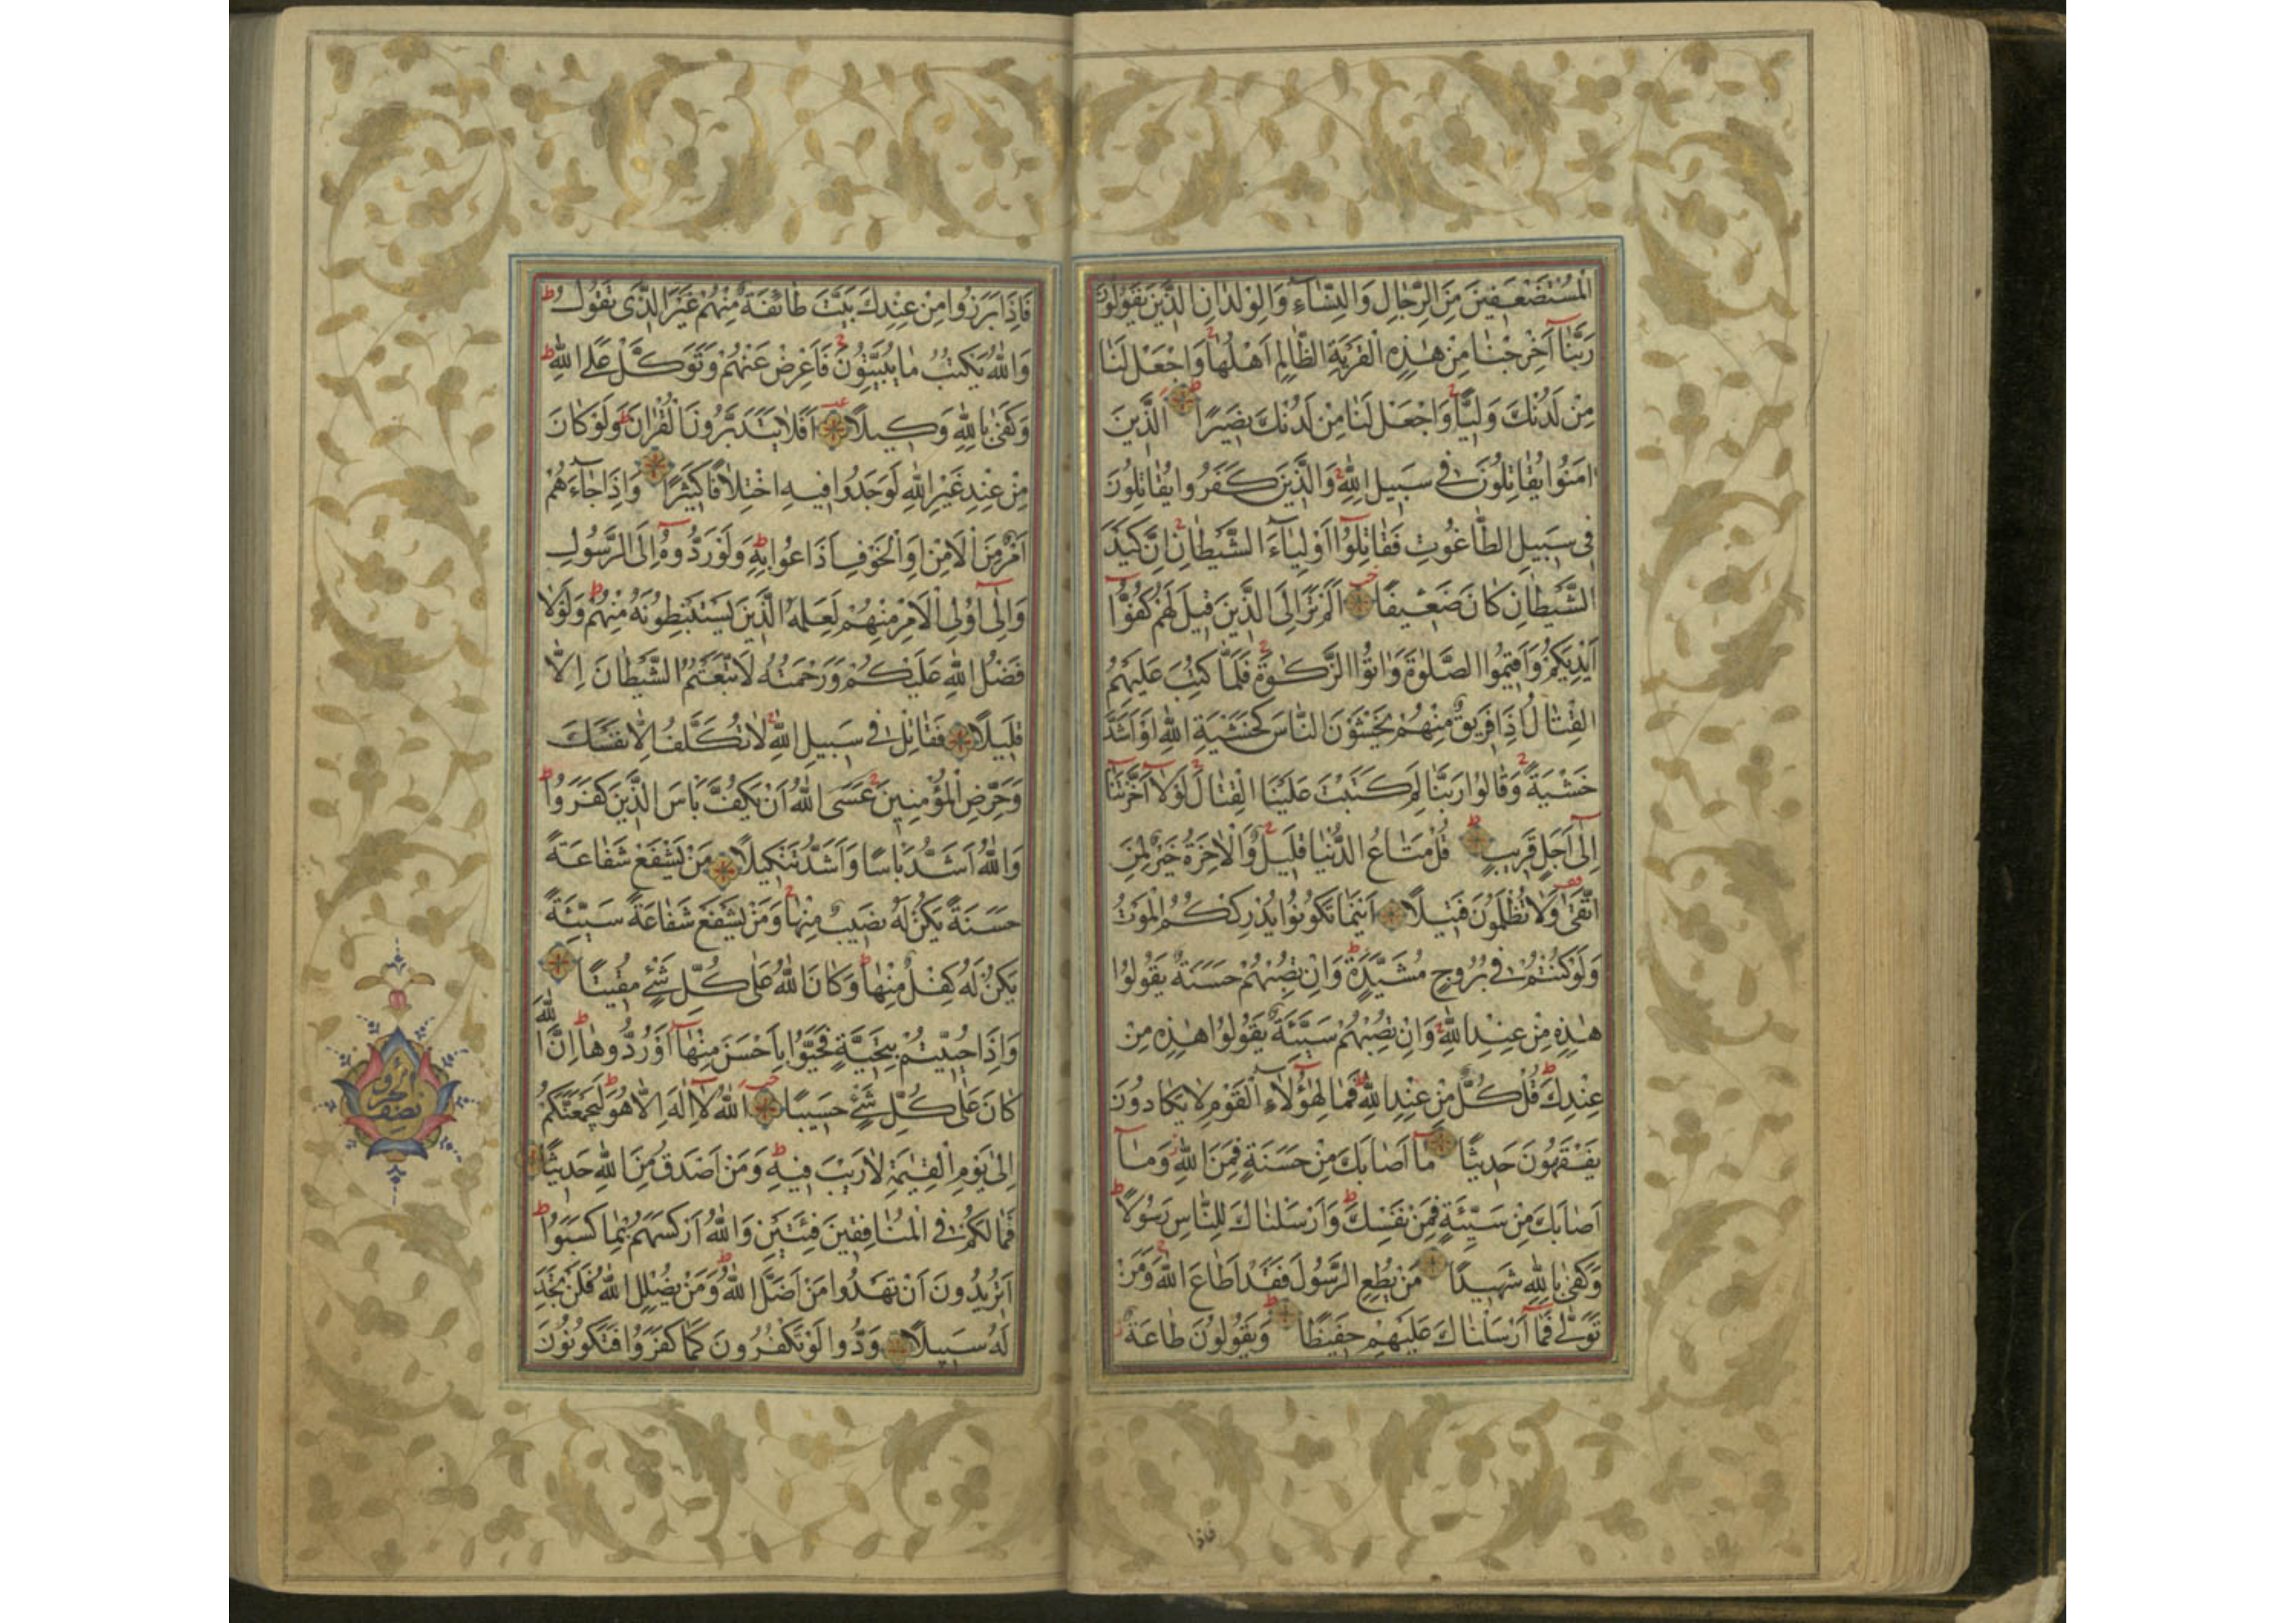 الْمُسْتَضْعَفِينَ مِنَ الرِّجَالِ وَالنِّسَآءِ وَالْوِلْدَانِ الَّذِينَ يَقُولُونَ
رَبَّنَآ اَخْرِجْنَا مِنْ هٰذِهِ الْقَرْيَةِ الظَّالِمِ اَهْلُهَا وَاجْعَلْ لَنَا
مِنْ لَدُنْكَ وَلِيًّا وَاجْعَلْ لَنَا مِنْ لَدُنْكَ نَصِيرًا اَلَّذِينَ
اٰمَنُوا يُقَاتِلُونَ فِى سَبِيلِ اللّٰهِ وَالَّذِينَ كَفَرُوا يُقَاتِلُونَ
فِى سَبِيلِ الطَّاغُوتِ فَقَاتِلُوٓا اَوْلِيَآءَ الشَّيْطَانِ اِنَّ كَيْدَ
الشَّيْطَانِ كَانَ ضَعِيفًا اَلَمْ تَرَ اِلَى الَّذِينَ قِيلَ لَهُمْ كُفُّوٓا
اَيْدِيَكُمْ وَاَقِيمُوا الصَّلٰوةَ وَاٰتُوا الزَّكٰوةَ فَلَمَّا كُتِبَ عَلَيْهِمُ
الْقِتَالُ اِذَا فَرِيقٌ مِنْهُمْ يَخْشَوْنَ النَّاسَ كَخَشْيَةِ اللّٰهِ اَوْ اَشَدَّ
خَشْيَةً وَقَالُوا رَبَّنَا لِمَ كَتَبْتَ عَلَيْنَا الْقِتَالَ لَوْلَآ اَخَّرْتَنَآ
اِلٰٓى اَجَلٍ قَرِيبٍ قُلْ مَتَاعُ الدُّنْيَا قَلِيلٌ وَالْاٰخِرَةُ خَيْرٌ لِمَنِ
اتَّقٰى وَلَا تُظْلَمُونَ فَتِيلًا اَيْنَمَا تَكُونُوا يُدْرِكْكُمُ الْمَوْتُ
وَلَوْ كُنْتُمْ فِى بُرُوجٍ مُشَيَّدَةٍ وَاِنْ تُصِبْهُمْ حَسَنَةٌ يَقُولُوا
هٰذِهِ مِنْ عِنْدِ اللّٰهِ وَاِنْ تُصِبْهُمْ سَيِّئَةٌ يَقُولُوا هٰذِهِ مِنْ
عِنْدِكَ قُلْ كُلٌّ مِنْ عِنْدِ اللّٰهِ فَمَا لِهٰٓؤُلَآءِ الْقَوْمِ لَا يَكَادُونَ
يَفْقَهُونَ حَدِيثًا مَآ اَصَابَكَ مِنْ حَسَنَةٍ فَمِنَ اللّٰهِ وَمَآ
اَصَابَكَ مِنْ سَيِّئَةٍ فَمِنْ نَفْسِكَ وَاَرْسَلْنَاكَ لِلنَّاسِ رَسُولًا
وَكَفٰى بِاللّٰهِ شَهِيدًا مَنْ يُطِعِ الرَّسُولَ فَقَدْ اَطَاعَ اللّٰهَ وَمَنْ
تَوَلّٰى فَمَآ اَرْسَلْنَاكَ عَلَيْهِمْ حَفِيظًا وَيَقُولُونَ طَاعَةٌ
فاذا
فَاِذَا بَرَزُوا مِنْ عِنْدِكَ بَيَّتَ طَآئِفَةٌ مِنْهُمْ غَيْرَ الَّذِى تَقُولُ
وَاللّٰهُ يَكْتُبُ مَا يُبَيِّتُونَ فَاَعْرِضْ عَنْهُمْ وَتَوَكَّلْ عَلَى اللّٰهِ
وَكَفٰى بِاللّٰهِ وَكِيلًا اَفَلَا يَتَدَبَّرُونَ الْقُرْاٰنَ وَلَوْ كَانَ
مِنْ عِنْدِ غَيْرِ اللّٰهِ لَوَجَدُوا فِيهِ اخْتِلَافًا كَثِيرًا وَاِذَا جَآءَهُمْ
اَمْرٌ مِنَ الْاَمْنِ اَوِ الْخَوْفِ اَذَاعُوا بِهِ وَلَوْ رَدُّوهُ اِلَى الرَّسُولِ
وَاِلٰٓى اُولِى الْاَمْرِ مِنْهُمْ لَعَلِمَهُ الَّذِينَ يَسْتَنْبِطُونَهُ مِنْهُمْ وَلَوْلَا
فَضْلُ اللّٰهِ عَلَيْكُمْ وَرَحْمَتُهُ لَاتَّبَعْتُمُ الشَّيْطَانَ اِلَّا
قَلِيلًا فَقَاتِلْ فِى سَبِيلِ اللّٰهِ لَا تُكَلَّفُ اِلَّا نَفْسَكَ
وَحَرِّضِ الْمُؤْمِنِينَ عَسَى اللّٰهُ اَنْ يَكُفَّ بَاْسَ الَّذِينَ كَفَرُوا
وَاللّٰهُ اَشَدُّ بَاْسًا وَاَشَدُّ تَنْكِيلًا مَنْ يَشْفَعْ شَفَاعَةً
حَسَنَةً يَكُنْ لَهُ نَصِيبٌ مِنْهَا وَمَنْ يَشْفَعْ شَفَاعَةً سَيِّئَةً
يَكُنْ لَهُ كِفْلٌ مِنْهَا وَكَانَ اللّٰهُ عَلٰى كُلِّ شَىْءٍ مُقِيتًا
وَاِذَا حُيِّيتُمْ بِتَحِيَّةٍ فَحَيُّوا بِاَحْسَنَ مِنْهَآ اَوْ رُدُّوهَا اِنَّ اللّٰهَ
كَانَ عَلٰى كُلِّ شَىْءٍ حَسِيبًا اَللّٰهُ لَآ اِلٰهَ اِلَّا هُوَ لَيَجْمَعَنَّكُمْ
اِلٰى يَوْمِ الْقِيٰمَةِ لَا رَيْبَ فِيهِ وَمَنْ اَصْدَقُ مِنَ اللّٰهِ حَدِيثًا
فَمَا لَكُمْ فِى الْمُنَافِقِينَ فِئَتَيْنِ وَاللّٰهُ اَرْكَسَهُمْ بِمَا كَسَبُوا
اَتُرِيدُونَ اَنْ تَهْدُوا مَنْ اَضَلَّ اللّٰهُ وَمَنْ يُضْلِلِ اللّٰهُ فَلَنْ تَجِدَ
لَهُ سَبِيلًا وَدُّوا لَوْ تَكْفُرُونَ كَمَا كَفَرُوا فَتَكُونُونَ
نصف